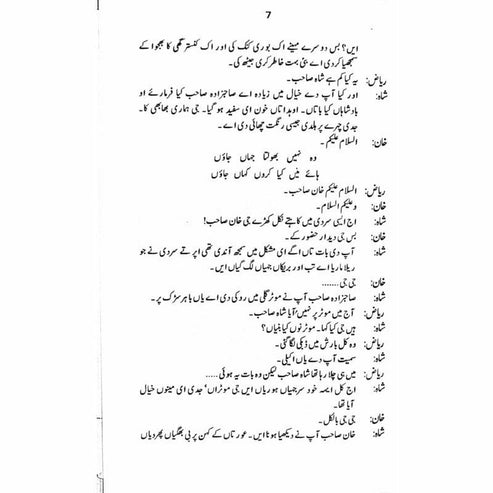 7
ایں؟ بس دوسرے مہینے اک بوری کنک کی اور اک کنستر گھی کا بھجوا کے
سمجھیا کردی اے بئی بہت خاطر کری جیٹھ کی۔
ریاض: یہ کیا کم ہے شاہ صاحب۔
شاہ: اور کیا آپ دے خیال میں زیادہ اے صاحبزادہ صاحب کیا فرمائے او
بادشاہاں کیا باتاں۔ اوہدا تاں خون ای سفید ہو گیا۔ جی ہماری بھابھی کا۔
جدی چہرے پر ہلدی جیسی رنگت چھائی دی اے۔
خان: السلام علیکم۔
وہ نہیں بھولتا جہاں جاؤں
ہائے میں کیا کروں کہاں جاؤں
ریاض: السلام علیکم خان صاحب۔
خان: وعلیکم السلام۔
شاہ: اج ایسی سردی میں کاہتے نکل کھڑے جی خان صاحب!
خان: بس جی دیدار حضور کے۔
شاہ: آپ دی بات تاں اگے ای مشکل میں سمجھ آندی تھی اپر تے سردی نے جو
ریلا ماریا اے تب اور بریکاں جمیاں لگ گیاں ایں۔
خان: جی جی.......
شاہ: صاحبزادہ صاحب آپ نے موٹر گلی میں روکی دی اے یاں باہر سڑک پر۔
ریاض: آج میں موٹر پر نہیں آیا شاہ صاحب۔
شاہ: ہیں جی کیا کہا۔ موٹر نوں کیا بنیاں؟
ریاض: وہ کل بارش میں ڈبکی لگا گئی۔
شاہ: سمیت آپ دے یاں اکیلی۔
ریاض: میں ہی چلا رہا تھا شاہ صاحب لیکن وہ بات یہ ہوئی.....
شاہ: اج کل ایہہ خود سرجیاں ہوریاں ایں جی موٹراں' جدی ای مینوں خیال
آیا تھا۔
خان: جی جی بالکل۔
شاہ: خان صاحب آپ نے دیکھیا ہونا ایں۔ عورتاں کے کہن پر بی بھگیاں پھردیاں